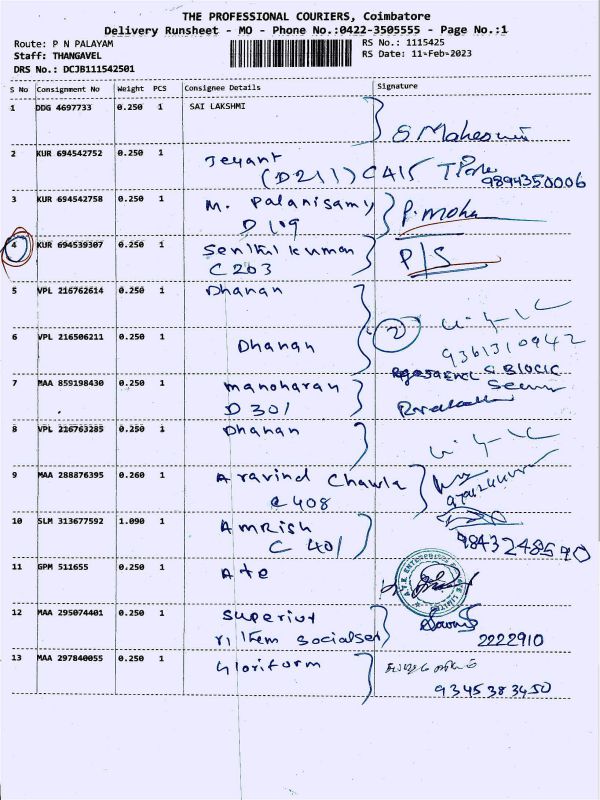 THE PROFESSIONAL COURIERS, Coimbatore
Delivery Runsheet - MO - Phone No.:0422-3505555 - Page No.:1
Route: P N PALAYAM
RS No.: 1115425
Staff: THANGAVEL
RS Date: 11-Feb-2023
DRS No.: DCJB111542501
S No Consignment No Weight PCS Consignee Details Signature
1 DDG 4697733 0.250 1 SAI LAKSHMI
2 KUR 694542752 0.250 1 Jeyant
(D211) C415
9894350006
3 KUR 694542758 0.250 1 M. Palanisamy P. Moha
D 109
4 KUR 694539307 0.250 1 Senthil kumar P/S
C 203
5 VPL 216762614 0.250 1 Dhanan
6 VPL 216506211 0.250 1 Dhanan 2
9361310942
BLOCK
7 MAA 859198430 0.250 1 Manoharan
D 301
8 VPL 216763285 0.250 1 Dhanan
9 MAA 288876395 0.260 1 Aravind Chawla
C 408
10 SLM 313677592 1.090 1 Amrish
C 401 9843248590
11 GPM 511655 0.250 1 Ate
12 MAA 295074401 0.250 1 Superiur
2222910
13 MAA 297840055 0.250 1 Gloriform
9345383450